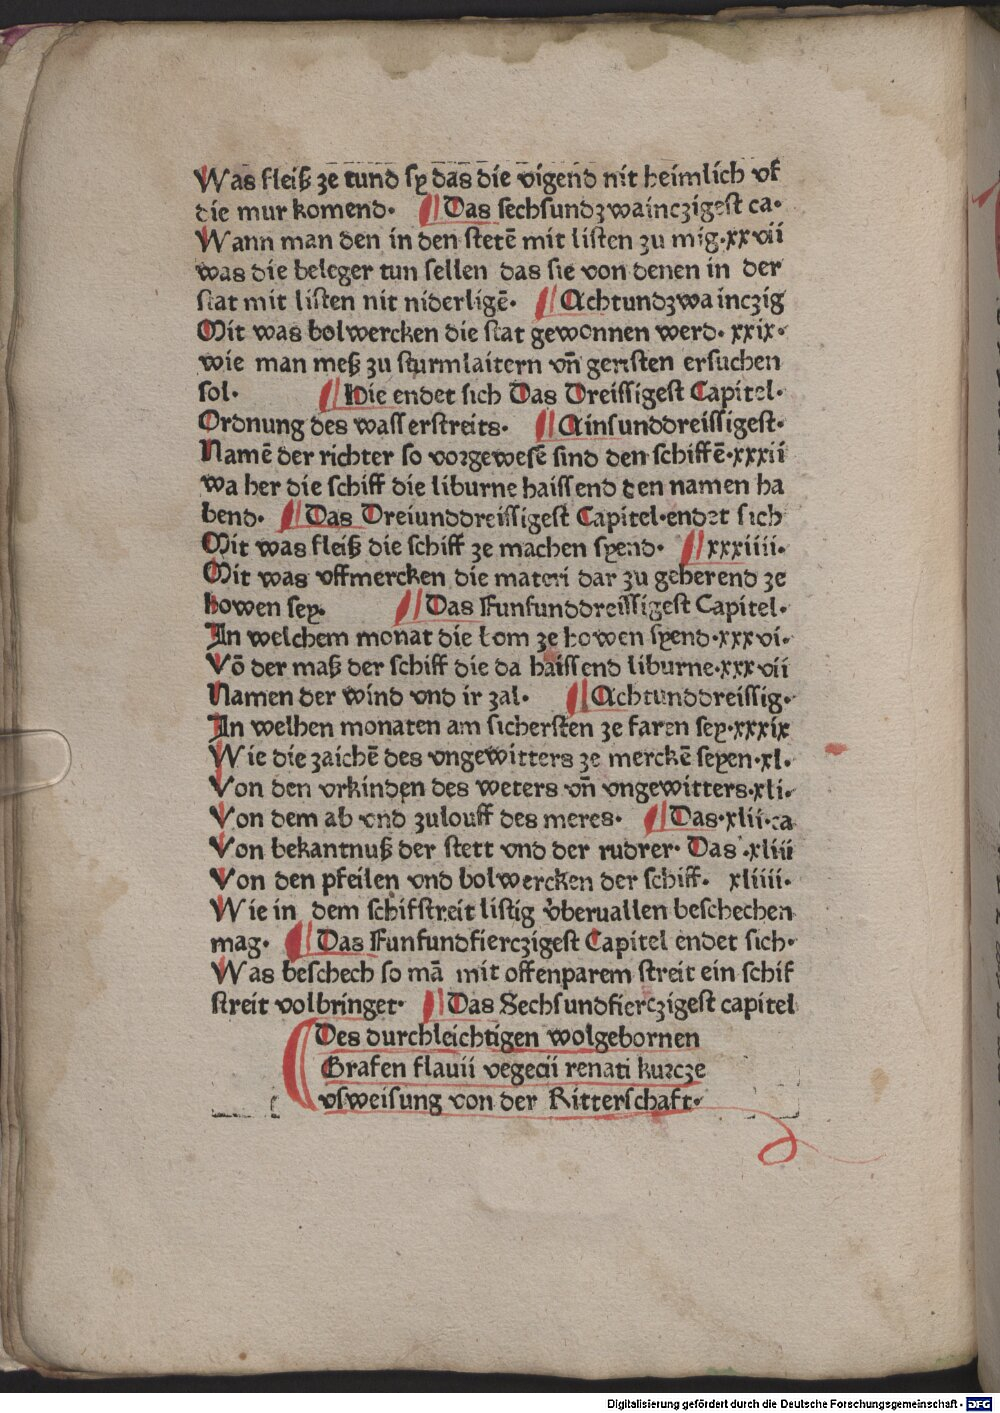 Was fleiß ze tund sy das die vigend nit heimlich vf
die mur komend. Das sechsundzwainczigest ca.
Wann man den in den stetē mit listen zu mig.xxvii
was die beleger tun sellen das sie von denen in der
stat mit listen nit niderligē. Achtundzwainczig
Mit was bolwercken die stat gewonnen werd. xxix.
wie man meß zu sturmlaitern vn̄ geristen ersuchen
sol. Hie endet sich Das Dreissigest Capitel.
Ordnung des wasserstreits. Ainsunddreissigest.
Namē der richter so vorgewesē sind den schiffē.xxxii
wa her die schiff die liburne haissend den namen ha
bend. Das Dreiunddreissigest Capitel.endet sich
Mit was fleiß die schiff ze machen syend. xxxiiii.
Mit was vffmercken die materi dar zu geherend ze
howen sey. Das Funfunddreissigest Capitel.
In welchem monat die bom ze howen syend.xxxvi.
Vō der maß der schiff die da haissend liburne.xxxvii
Namen der wind vnd ir zal. Achtunddreissig.
In welhen monaten am sichersten ze faren sey.xxxix
Wie die zaichē des vngewitters ze merckē seyen.xl.
Von den vrkinden des weters vn̄ vngewitters.xli.
Von dem ab vnd zulouff des meres. Das.xlii.ca
Von bekantnuß der stett vnd der rudrer. Das.xliii
Von den pfeilen vnd bolwercken der schiff. xliiii.
Wie in dem schifstreit listig vberuallen beschechen
mag. Das Funfundfierczigest Capitel endet sich.
Was beschech so mā mit offenparem streit ein schif
streit volbringet. Das Sechsundfierczigest capitel
Des durchleichtigen wolgebornen
Grafen flauii vegecii renati kurcze
vsweisung von der Ritterschaft.
Digitalisierung gefördert durch die Deutsche Forschungsgemeinschaft - DFG